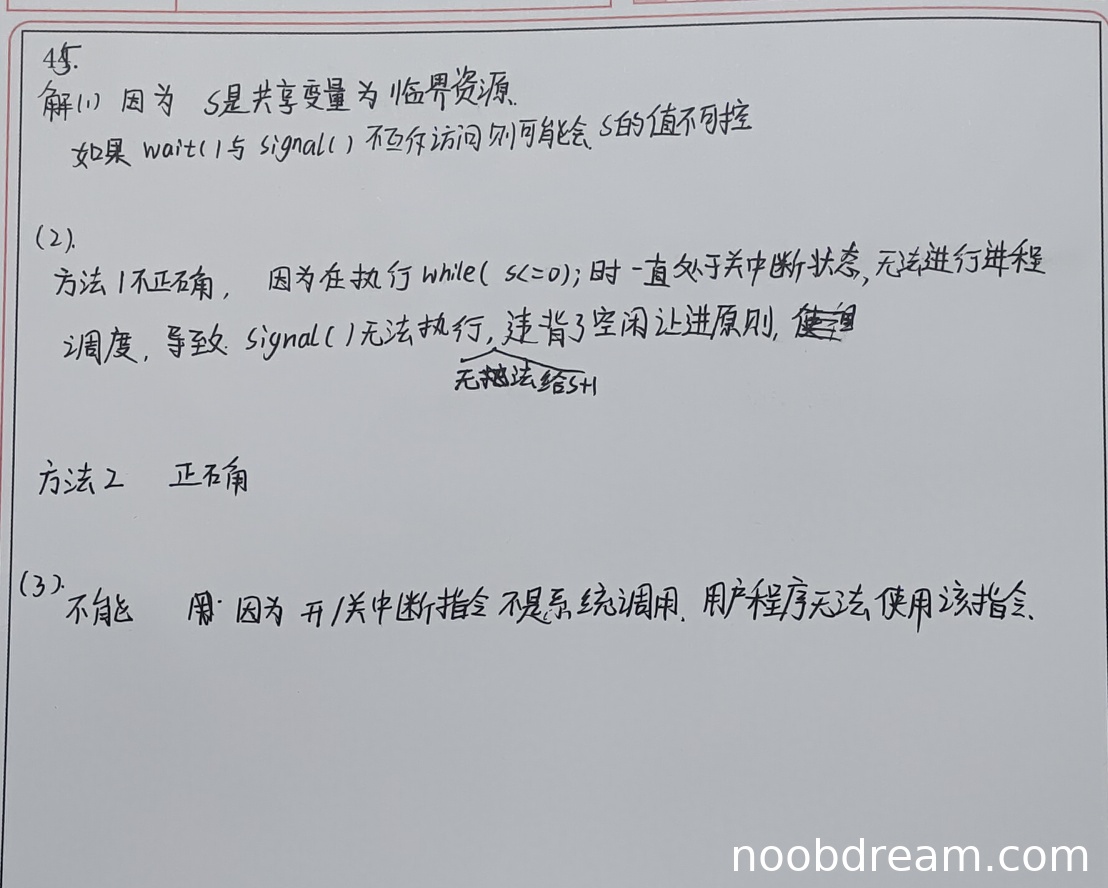 45.
解(1) 因为 S是共享变量为临界资源.
如果 wait()与 signal() 不互斥访问则可能会 S的值不可控
(2).
方法1不正确, 因为在执行while( S<=0); 时一直处于关中断状态, 无法进行进程
调度, 导致 signal()无法执行, 违背了空闲让进原则,
无法给S+1
方法2 正确
(3).
不能 因为 开/关中断指令 不是系统调用. 用户程序无法使用该指令.
noobdream.com